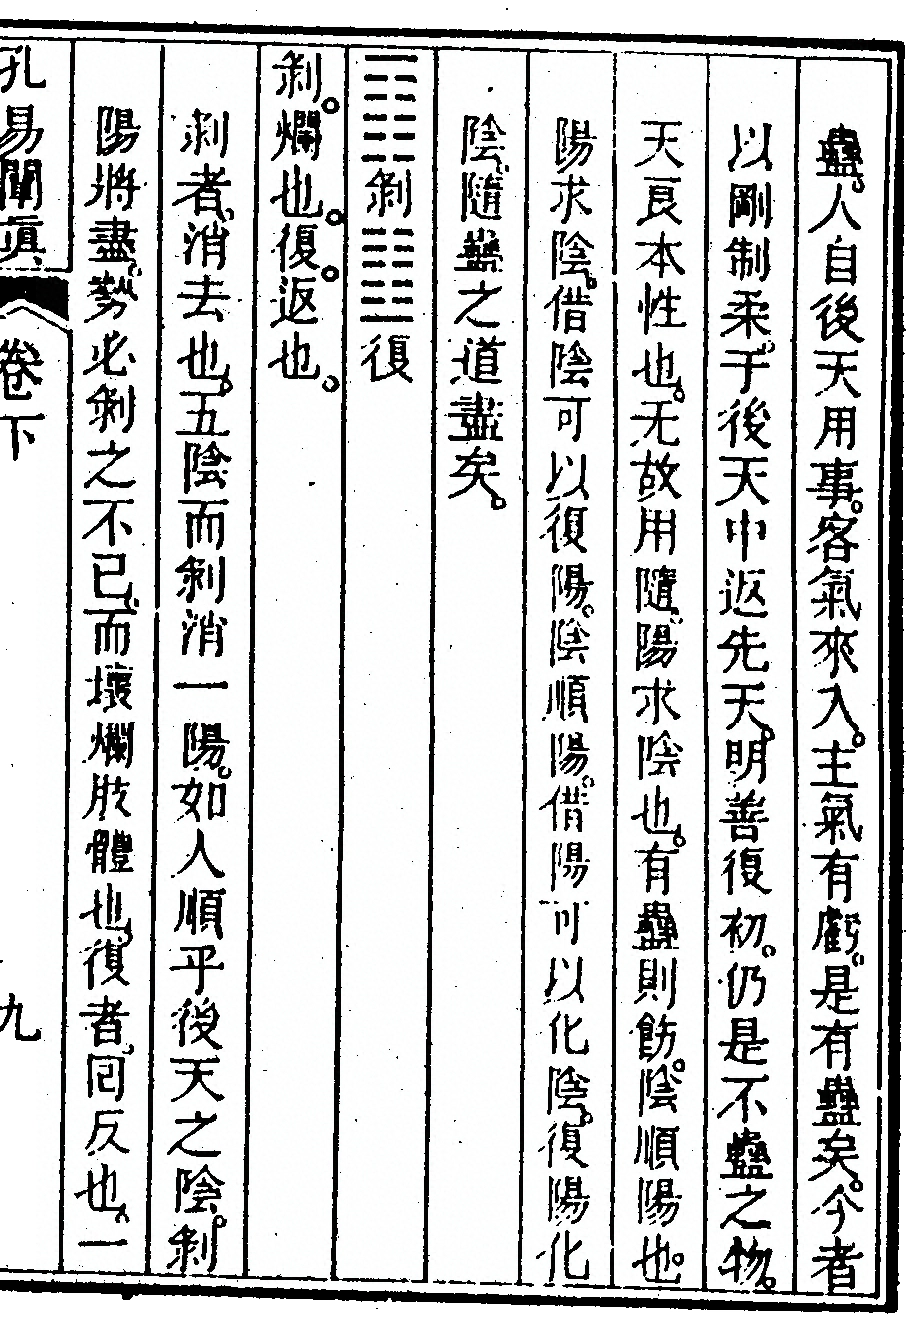 蠱。人自後天用事。客氣來入。主氣有虧。是有蠱矣。今者
以剛制柔。于後天中返先天。明善復初。仍是不蠱之物。
天良本性也。无故用隨。陽求陰也。有蠱則飭。陰順陽也。
陽求陰。借陰可以復陽。陰順陽。借陽可以化陰。復陽化
陰、隨蠱之道盡矣。
䷖剝䷗復
剝。爛也。復。返也。
剝者、消去也。五陰而剝消一陽。如人順乎後天之陰。剝
陽將盡。勢必剝之不已、而壞爛肢體也。復者、囘反也。一
孔易闡眞 卷下 九